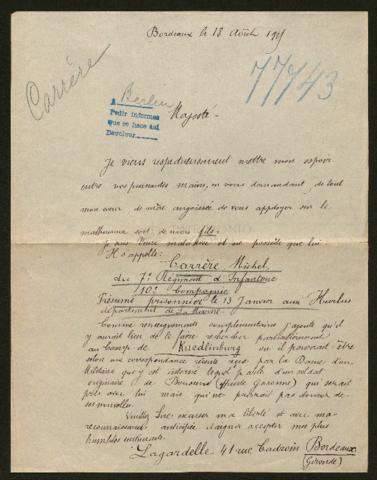 Bordeaux le 18 Août 1915
Carrère
77743
A Berlin
Pedir informes
que se hace aui
Devolver
Majesté -
Je viens respectueusement mettre mon espoir
entre vos puissantes mains, en vous demandant, de tout
mon cœur de mère angoissée de vous appuyer sur le
malheureux sort de mon fils.
Je suis Veuve malade et ne possède que lui
Il s'appelle:
Carrère Michel,
du 7e Régiment d'Infanterie
10e Compagnie
Présumé prisonnier le 13 Janvier aux Hurlus
département de La Marne.
Comme renseignements complémentaires j'ajoute qu'il
y aurait lieu de le faire rechercher
au Camp de Quedlinburg où il pourrait être
selon une correspondance récente reçue par la Dame d'un
Militaire qui y est interné lequel parle d'un soldat
originaire de (Haute Garonne) qui serait
avec lui mais qui ne pourrait pas donner de
ses nouvelles.
Veuillez Sire excuser ma liberté et avec ma
reconnaissance anticipée daignez accepter mes plus
humbles
Lagardelle 41 rue Cadroin Bordeaux
(Gironde)